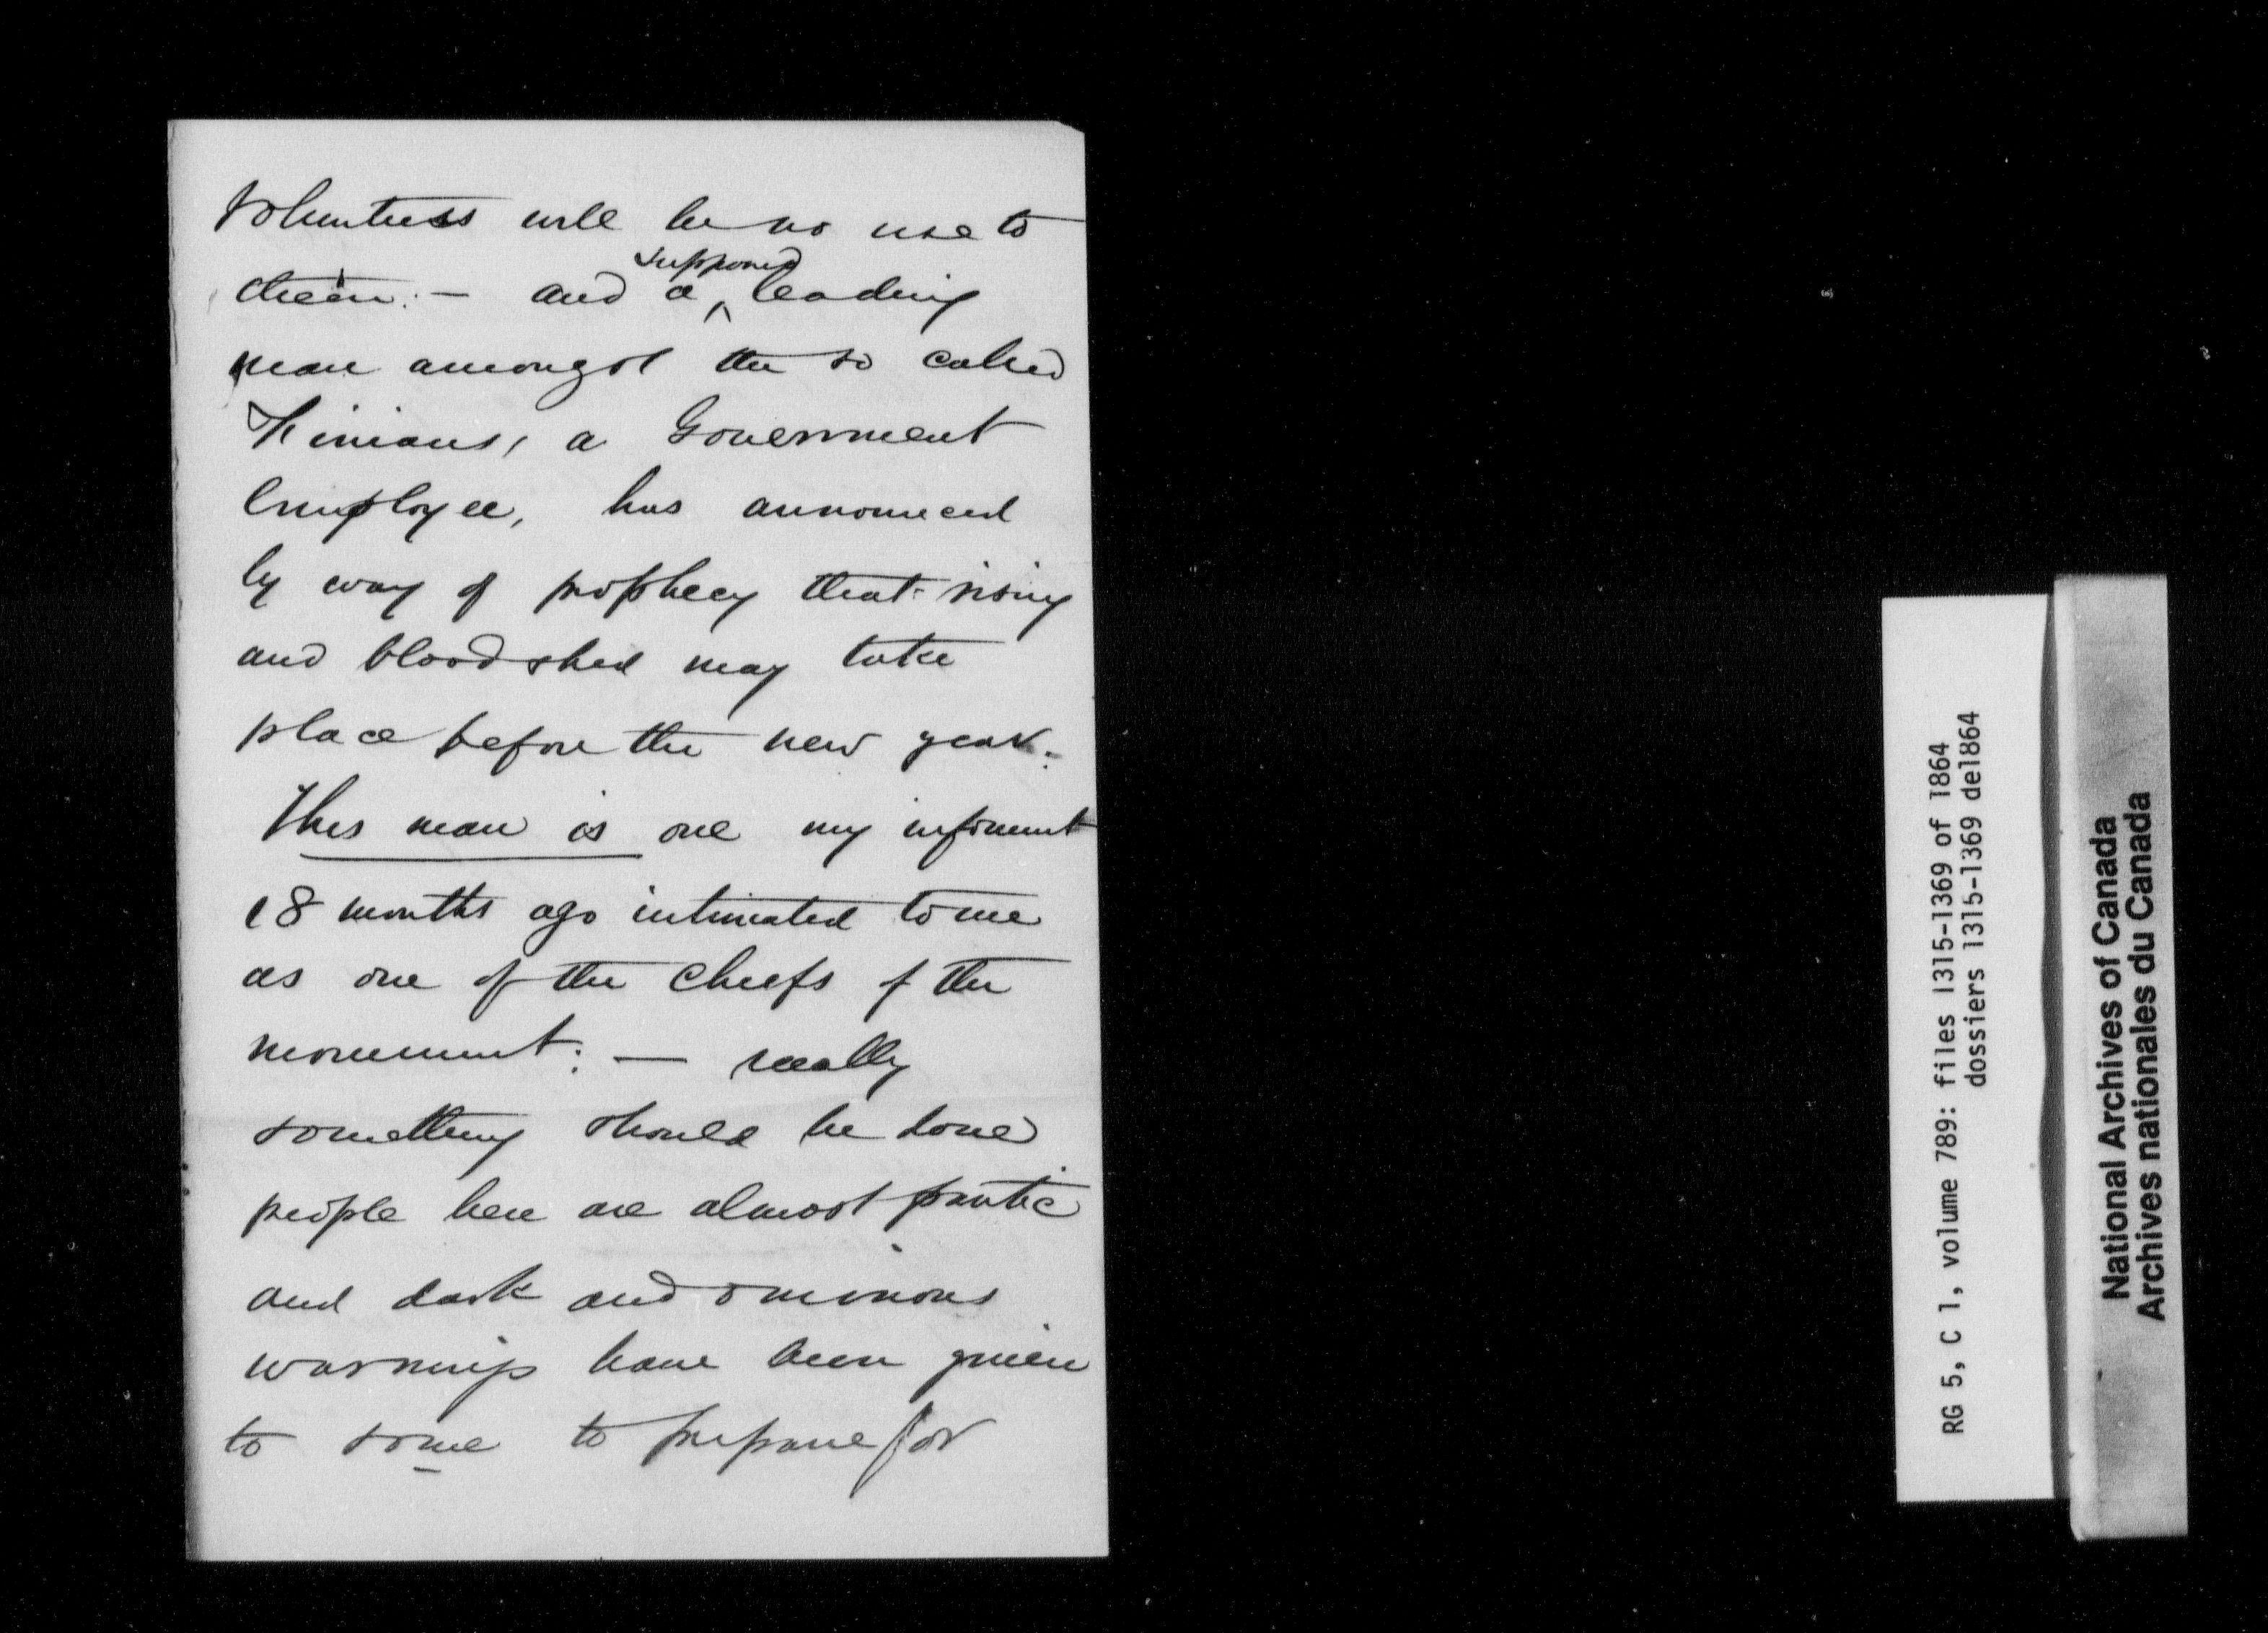 Volunteers will be no use to
them: — and a supposed leading
man amongst the so called
Finians, a Government
Employee, has announced
by way of prophecy that rising
and bloodshed may take
place before the new year.
This man is one my informant
18 months ago intimated to me
as one of the Chiefs of the
movement: — really
something should be done
people here are almost frantic
and dark and ominous
warnings have been given
to some to prepare for
RG 5, C 1, volume 789: files 1315-1369 of 1864
dossiers 1315-1369 de1864
National Archives of Canada
Archives nationales du Canada